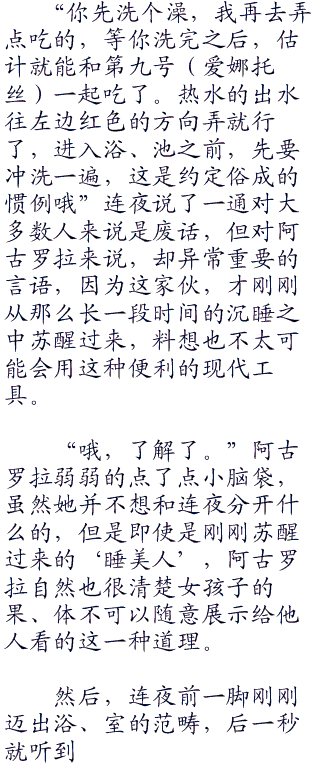 “你先洗个澡，我再去弄
点吃的，等你洗完之后，估
计就能和第九号（爱娜托
丝）一起吃了。热水的出水
往左边红色的方向弄就行
了，进入浴、池之前，先要
冲洗一遍，这是约定俗成的
惯例哦”连夜说了一通对大
多数人来说是废话，但对阿
古罗拉来说，却异常重要的
言语，因为这家伙，才刚刚
从那么长一段时间的沉睡之
中苏醒过来，料想也不太可
能会用这种便利的现代工
具。
“哦，了解了。”阿古
罗拉弱弱的点了点小脑袋，
虽然她并不想和连夜分开什
么的，但是即使是刚刚苏醒
过来的‘睡美人’，阿古罗
拉自然也很清楚女孩子的
果、体不可以随意展示给他
人看的这一种道理。
然后，连夜前一脚刚刚
迈出浴、室的范畴，后一秒
就听到